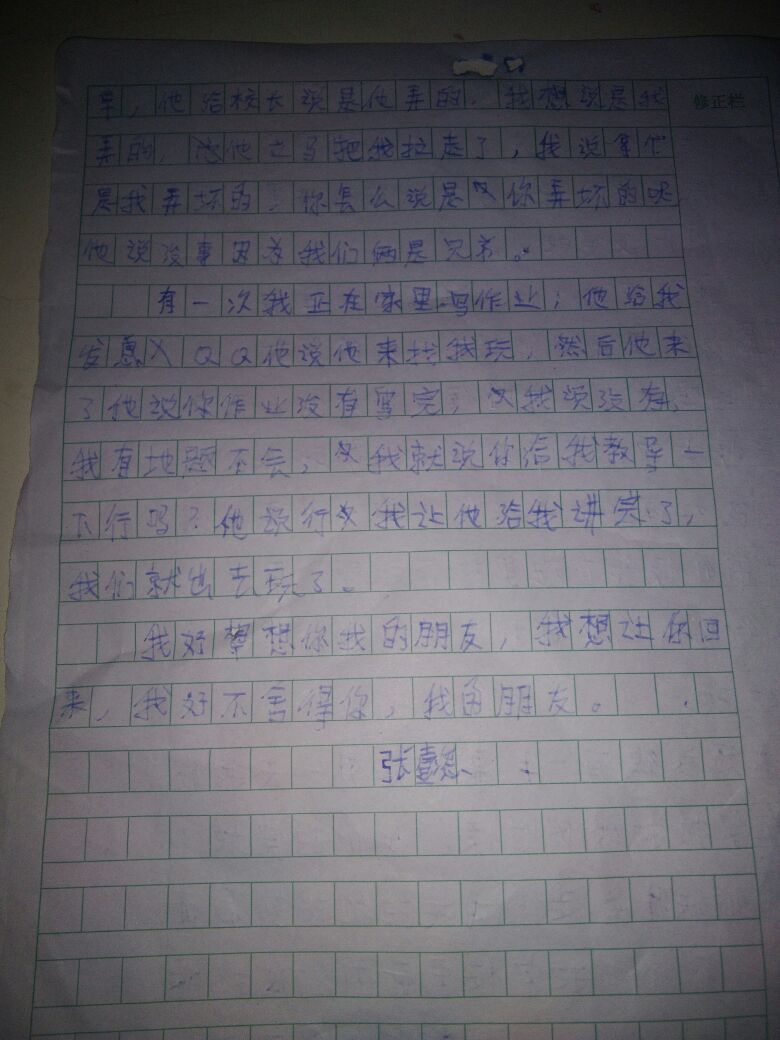 车，他给校长说是他弄的，我想说是我
弄的，他立马把我拉走了，我说
是我弄坏的，你怎么说是你弄坏的呢
他说没事因为我们俩是兄弟。
有一次我正在家里写作业，他给我
发QQ他说他来找我玩，然后他来
了他说你作业没有写完，我说没有，
我有地题不会，我就说你给我教导一
下行吗？他说行我让他给我讲完了，
我们就出去玩了。
我好想你我的朋友，我想让你回
来，我好不舍得你，我的朋友。
张
修正栏